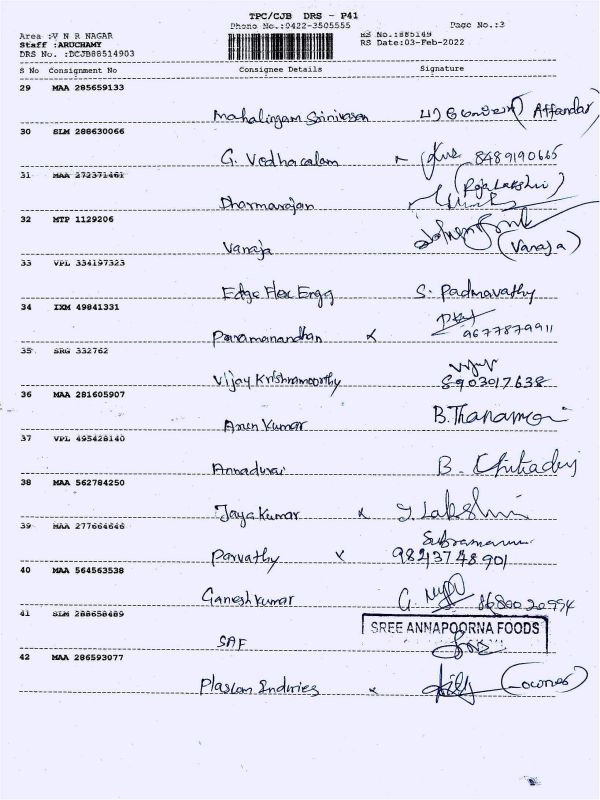 TPC/CJB DRS - P41
Phone No.:0422-3505555 Page No.:3
Area :V N R NAGAR RS No.:885149
Staff :ARUCHAMY RS Date:03-Feb-2022
DRS No. :DCJB88514903
S No Consignment No Consignee Details Signature
29 MAA 285659133
Mahalingam Srinivasan
30 SLM 288630066
G. Vedhacalam 8489190665
31 MAA 272371461 (Rajalakshmi)
Dharmarajan
32 MTP 1129206
Vanaja (Vanaja)
33 VPL 334197323
Edge Flex Engg S. Padmavathy
34 IXM 49841331
Paramanandhan x 9677879911
35 SRG 332762
Vijay Krishnamoorthy 8903017638
36 MAA 281605907
Arun Kumar B.Thanam
37 VPL 495428140
Annadurai B.
38 MAA 562784250
Jaya Kumar x J. Lakshmi
39 MAA 277664646 Subramani
Parvathy x 9843748901
40 MAA 564563538
Ganesh kumar G 8680020994
41 SLM 288658489 SREE ANNAPOORNA FOODS
SAF
42 MAA 286593077
Plaslon Indiries x (owner)